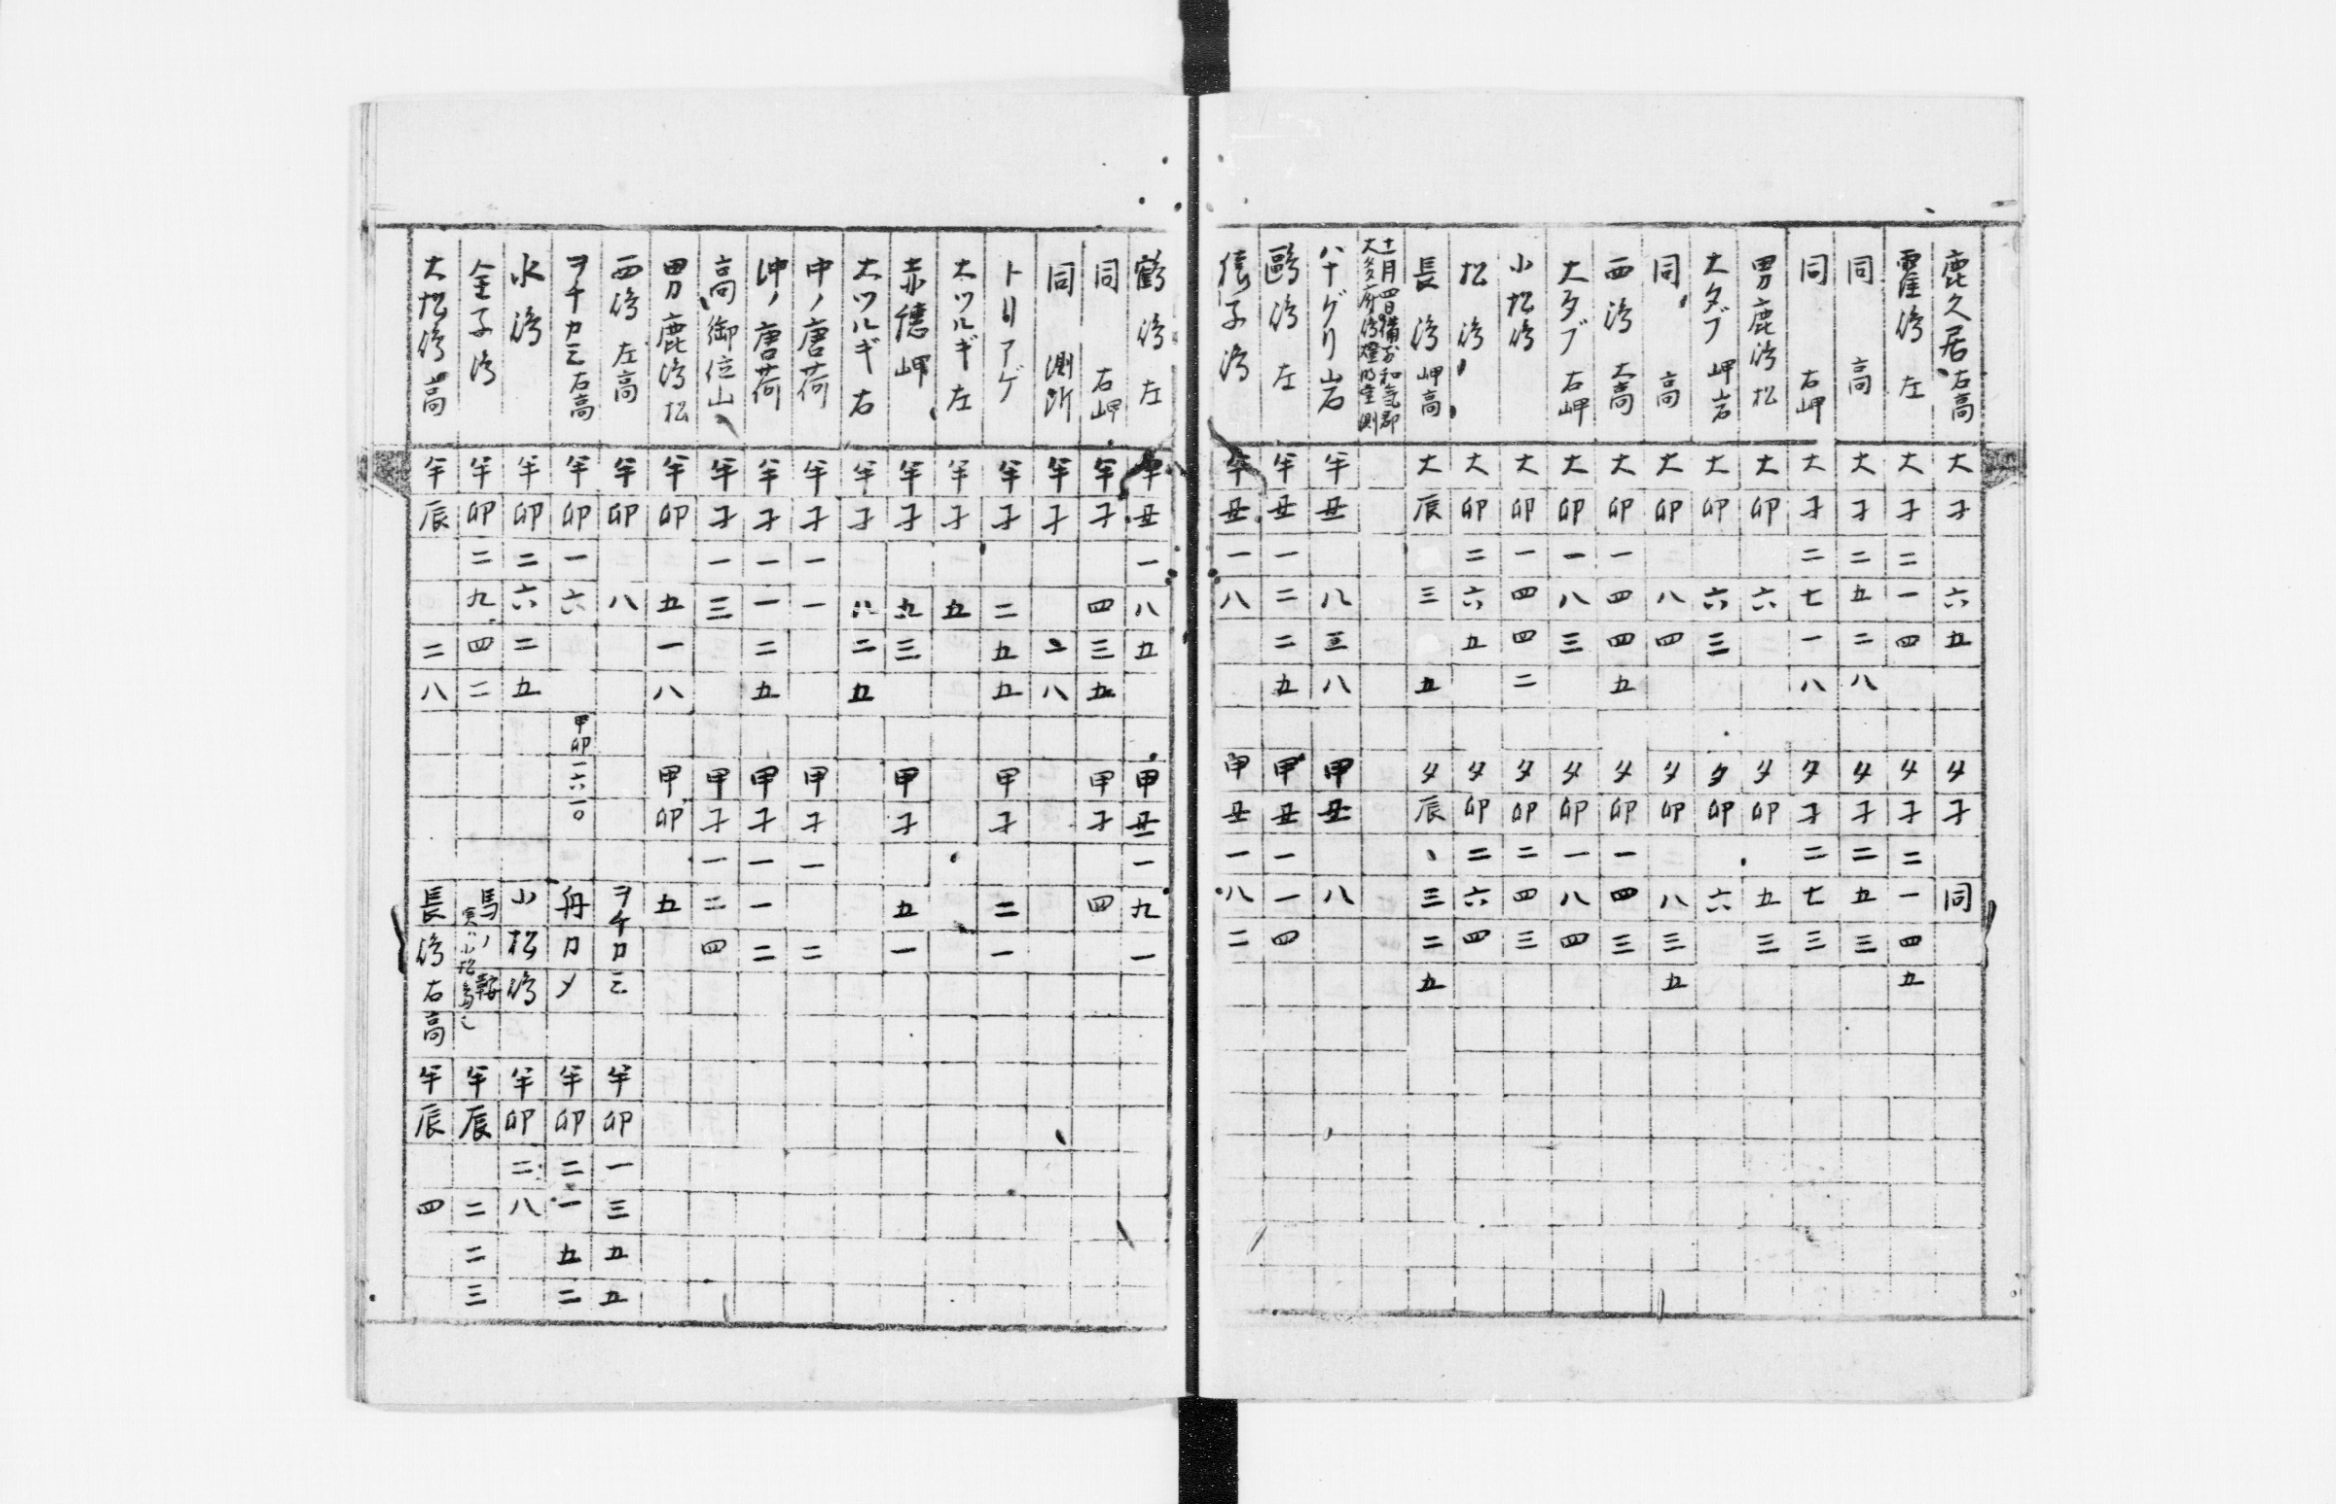 鹿久居 右高 大 子 六 五 夕 子 同
霍嶋 左 大 子 二 一 四 夕 子 二 一 四 五
同 高 大 子 二 五 二 八 夕 子 二 五 三
同 右岬 大 子 二 七 一 八 夕 子 二 七 三
男鹿嶋松 大 卯 六 夕 卯 五 三
大タブ 岬岩 大 卯 六 三 夕 卯 六
同 高 大 卯 八 四 夕 卯 八 三 五
西嶋 大高 大 卯 一 四 四 五 夕 卯 一 四 三
大タブ 右岬 大 卯 一 八 三 夕 卯 一 八 四
小松嶋 大 卯 一 四 四 二 夕 卯 二 四 三
松嶋 大 卯 二 六 五 夕 卯 二 六 四
長嶋 岬高 大 辰 三 五 夕 辰 、 三 二 五
十一月四日備前和気郡
大多府嶋燈明堂測
ハナグリ岩 半 丑 八 三 八 甲 丑 八
鴎嶋 左 半 丑 一 二 二 五 甲 丑 一 一 四
子嶋 半 丑 一 八 甲 丑 一 八 二
鶴嶋 左 半 丑 一 八 五 甲 丑 一 九 一
同 右岬 半 子 四 三 五 甲 子 四
同 測所 半 子 二 八
トリアゲ 半 子 二 五 五 甲 子 二 一
大ツルギ 左 半 子 五
赤穂岬 半 子 五 三 甲 子 五 一
大ツルギ 右 半 子 八 二 五
中ノ唐荷 半 子 一 一 甲 子 一 二
沖ノ唐荷 半 子 一 一 二 五 甲 子 一 一 二
高御位山 半 子 一 三 甲 子 一 二 四
男鹿嶋松 半 卯 五 一 八 甲 卯 五
西嶋 左高 半 卯 八 ヲチカミ 半 卯 一 三 五 五
ヲチカミ 右高 半 卯 一 六 甲卯一六一〇 舟カメ 半 卯 二 一 五 二
水嶋 半 卯 二 六 二 五 小松嶋 半 卯 二 八
金子嶋 半 卯 二 九 四 二 馬ノ鞍 実ハ小松嶋也 半 辰 二 二 三
大松嶋高 半 辰 二 八 長嶋右高 半 辰 四